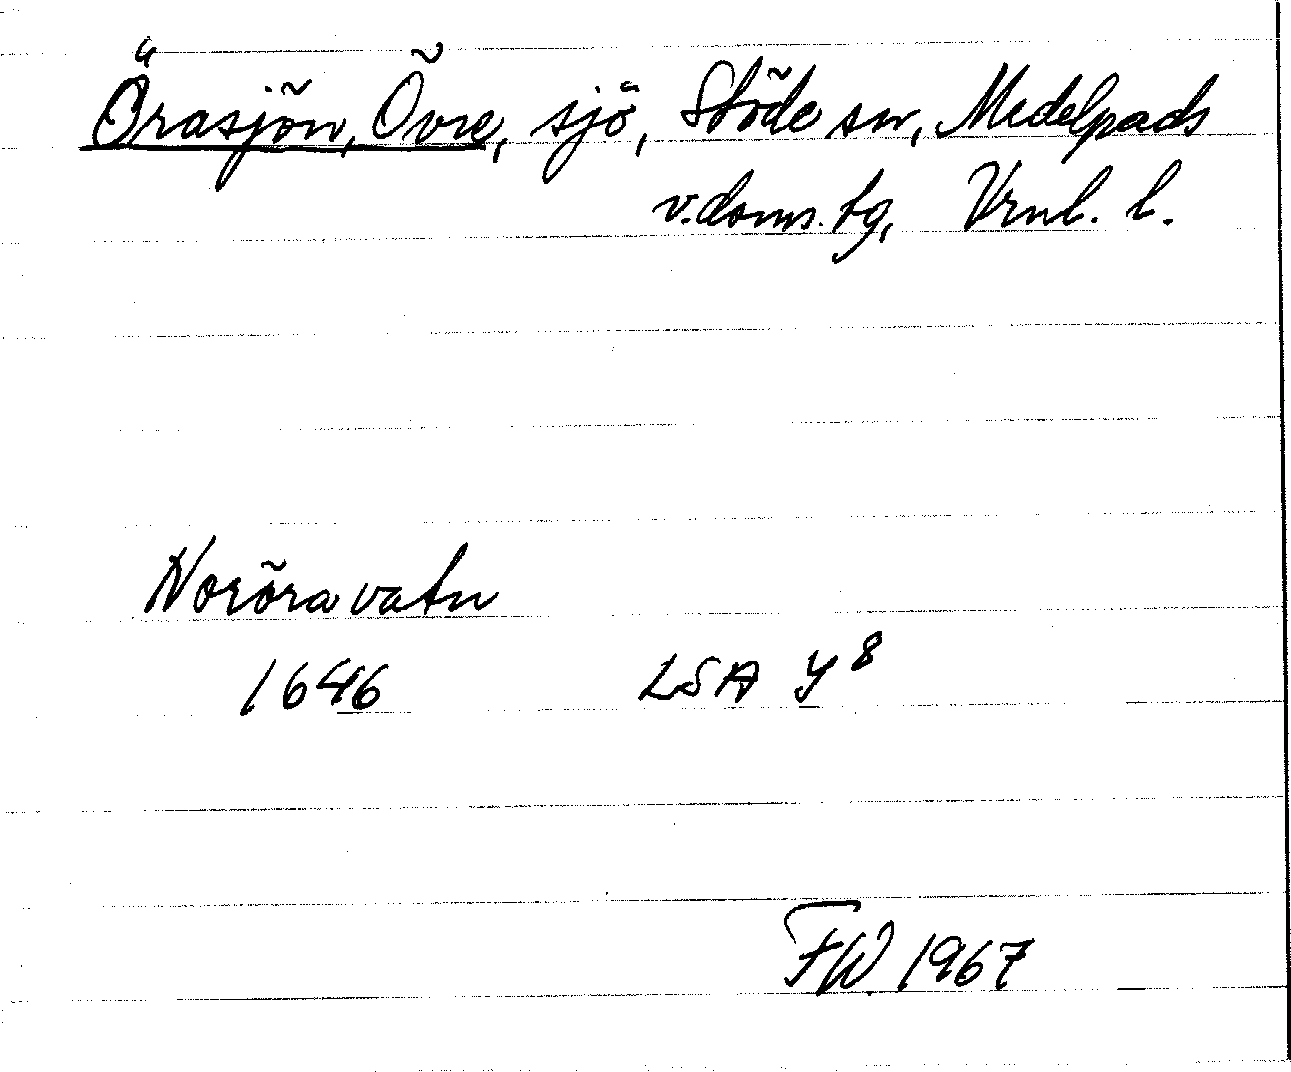 Örasjön, Övre, sjö, Stöde sn, Medelpads
v. doms. tg, Vrnl. l.
Noröra vatn
1646 LSA Y8
FW. 1967